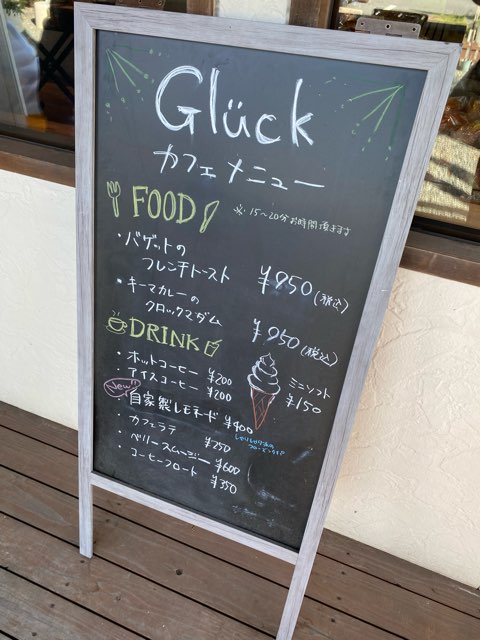 Glück
カフェメニュー
FOOD
※15〜20分お時間頂きます
・バゲットの
フレンチトースト ¥850(税込)
・キーマカレーの
クロックマダム ¥950(税込)
DRINK
・ホットコーヒー ¥200
アイスコーヒー ¥200
New!!
自家製レモネード ¥400
・カフェラテ ¥250
・ベリースムージー ¥600
・コーヒーフロート ¥350
ミニソフト
¥150